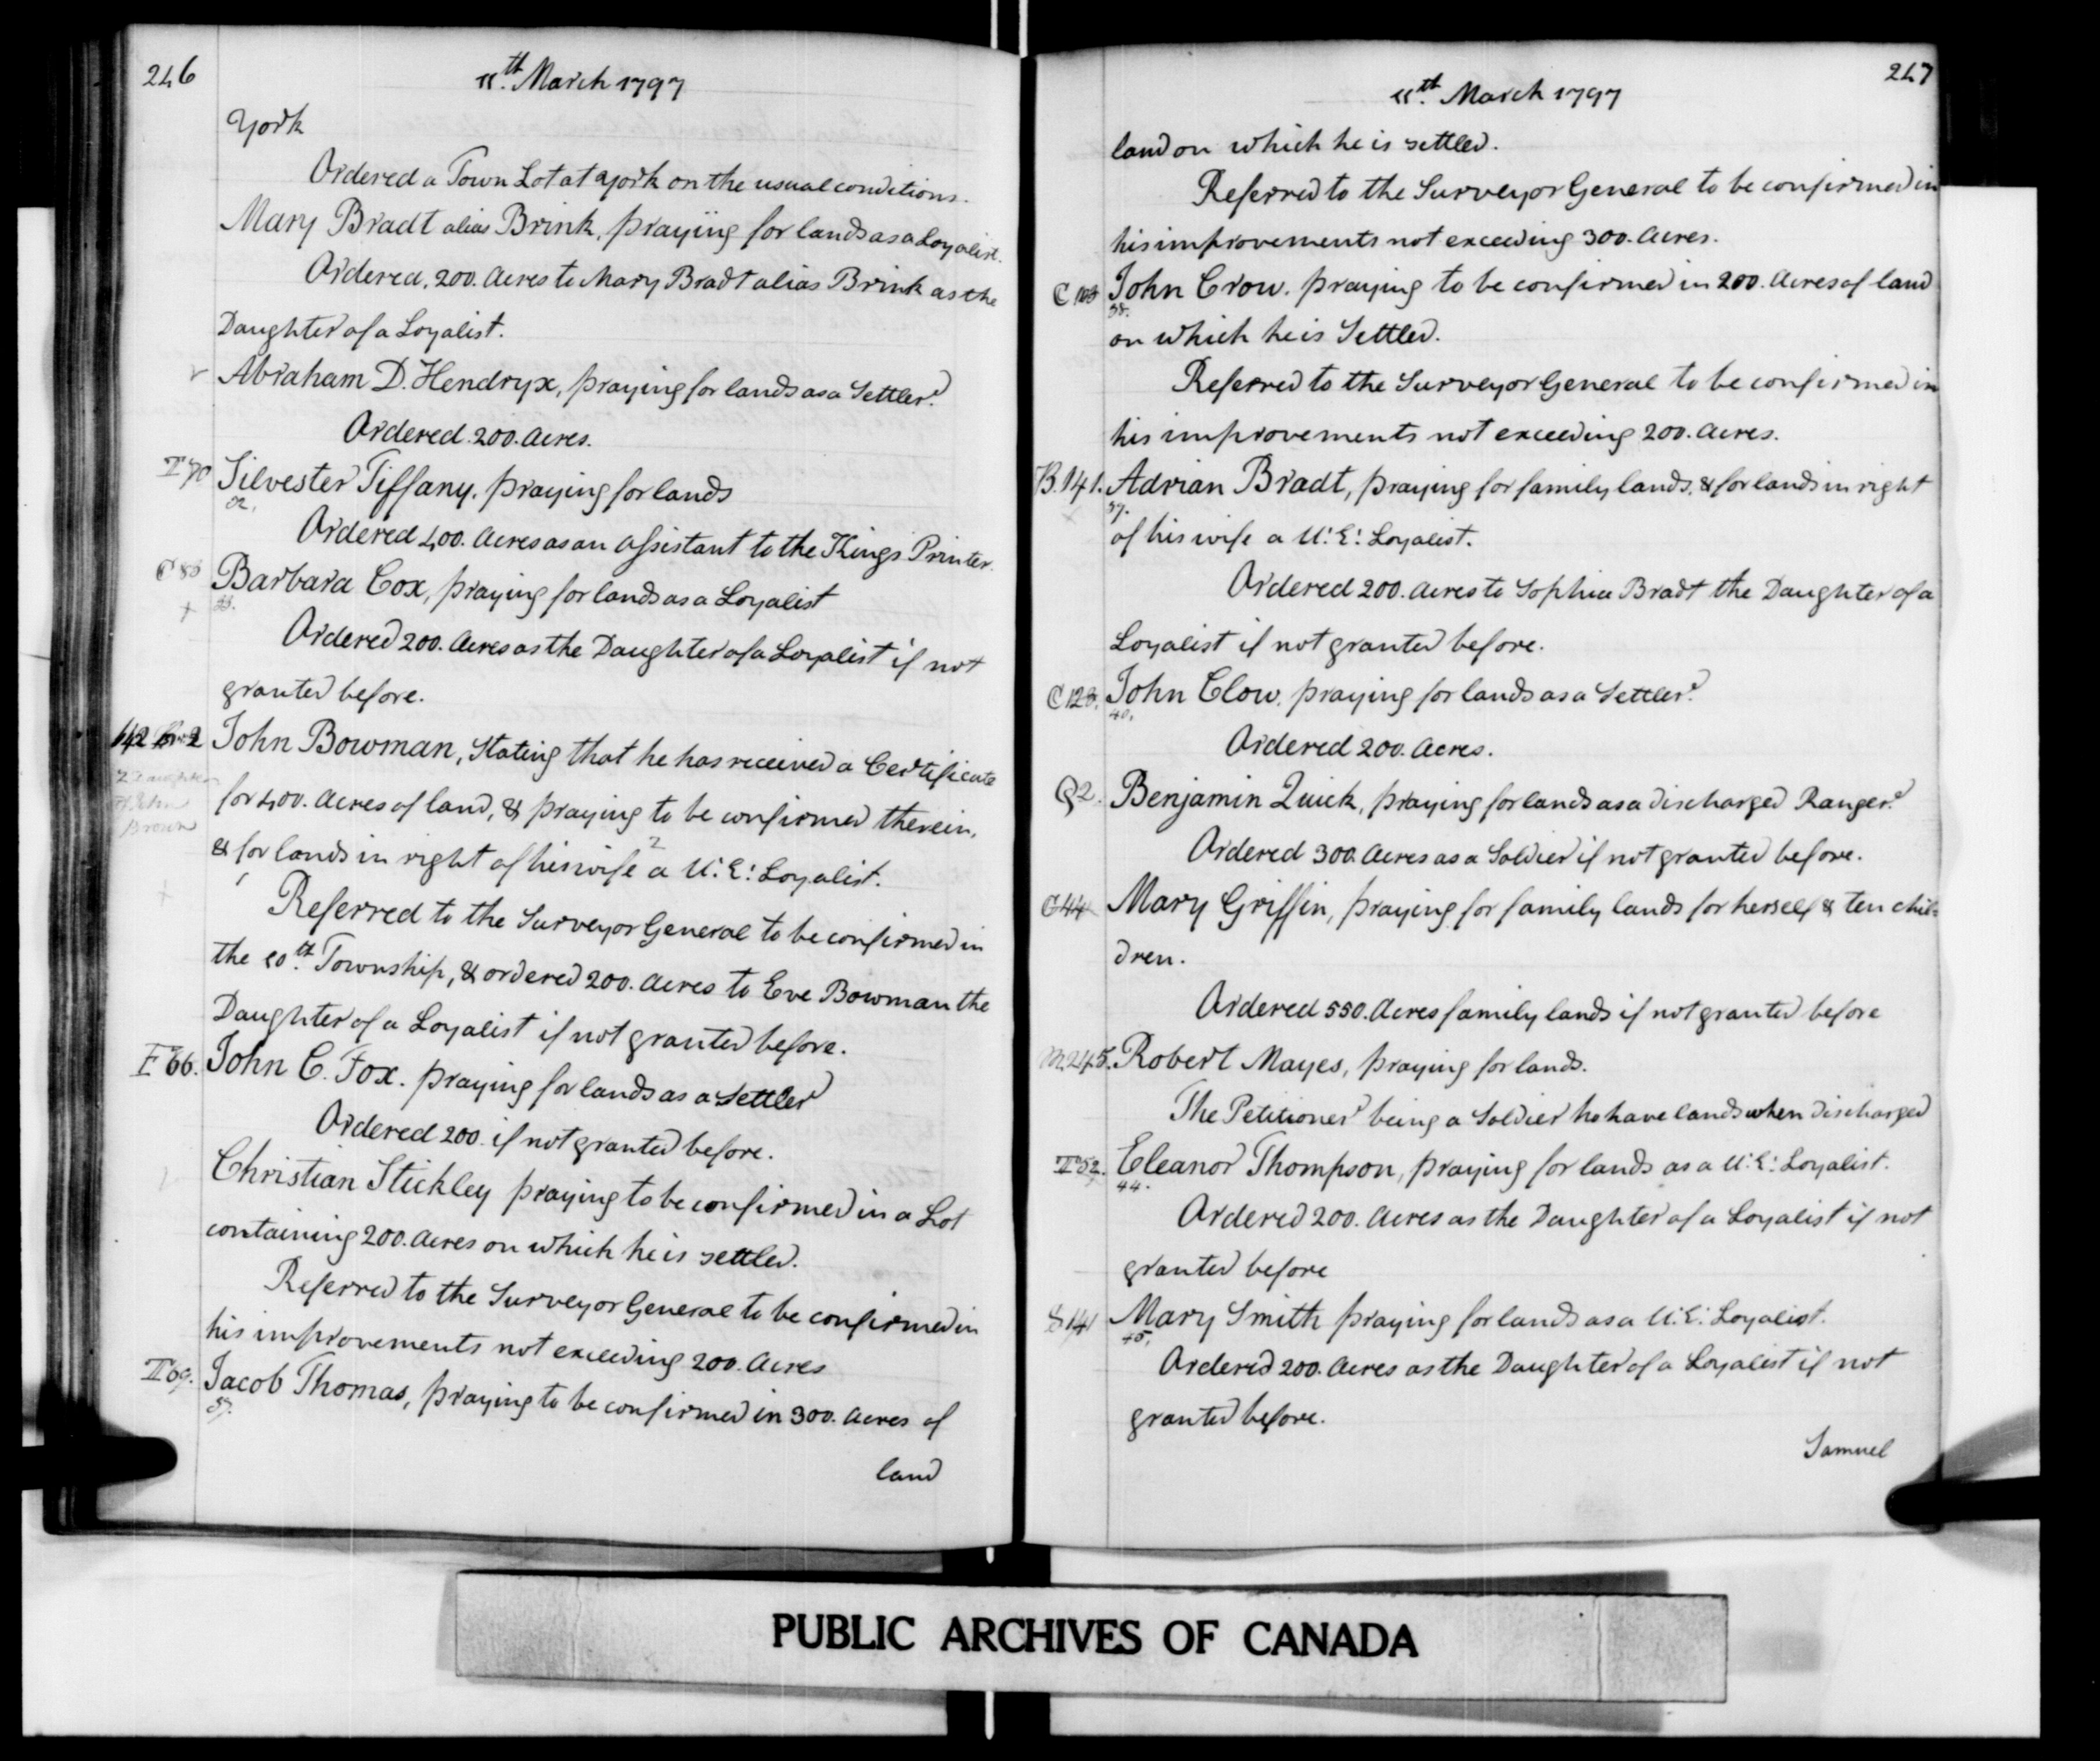 246
11th. March 1797
York
Ordered a Town Lot at York on the usual conditions.
Mary Bradt alias Brink, praying for lands as a Loyalist.
Ordered, 200. Acres to Mary Bradt alias Brink as the
Daughter of a Loyalist.
Abraham D. Hendryx, praying for lands as a Settler.
Ordered. 200. Acres.
T 70 Silvester Tiffany, praying for lands
32.
Ordered 400. Acres as an Assistant to the Kings Printer.
Barbara Cox, praying for lands as a Loyalist
Ordered 200. Acres as the Daughter of a Loyalist if not
granted before.
John Bowman, Stating that he has received a Certificate
for 400. Acres of land, & praying to be confirmed therein,
& for lands in right of his wife a U. E. Loyalist.
Referred to the Surveyor General to be confirmed in
the 10th. Township, & ordered 200. Acres to Eve Bowman the
Daughter of a Loyalist if not granted before.
F 66. John C. Fox. praying for lands as a Settler
Ordered 200. if not granted before.
Christian Stickley praying to be confirmed in a Lot
containing 200. Acres on which he is settled.
Referred to the Surveyor General to be confirmed in
his improvements not exceeding 200. Acres
T 69. Jacob Thomas, praying to be confirmed in 300. Acres of
37.
land
247
11th. March 1797
land on which he is settled.
Referred to the Surveyor General to be confirmed in
his improvements not exceeding 300. Acres.
John Crow. praying to be confirmed in 200. Acres of land
38.
on which he is Settled.
Referred to the Surveyor General to be confirmed in
his improvements not exceeding 200. Acres.
B. 141. Adrian Bradt, praying for family lands, & for lands in right
of his wife a U. E. Loyalist.
Ordered 200. Acres to Sophia Bradt the Daughter of a
Loyalist if not granted before.
John Clow. praying for lands as a Settler.
40.
Ordered 200. Acres.
Q 2. Benjamin Quick, praying for lands as a discharged Ranger.
Ordered 300. Acres as a Soldier if not granted before.
G 44 Mary Griffin, praying for family lands for herself & ten chil=
dren.
Ordered 550. Acres family lands if not granted before
M. 245. Robert Mayes, praying for lands.
The Petitioner being a Soldier to have lands when discharged
T 52. Eleanor Thompson, praying for lands as a U. E. Loyalist.
44.
Ordered 200. Acres as the Daughter of a Loyalist if not
granted before
S 141 Mary Smith praying for lands as a U. E. Loyalist.
45.
Ordered 200. Acres as the Daughter of a Loyalist if not
granted before.
Samuel
PUBLIC ARCHIVES OF CANADA